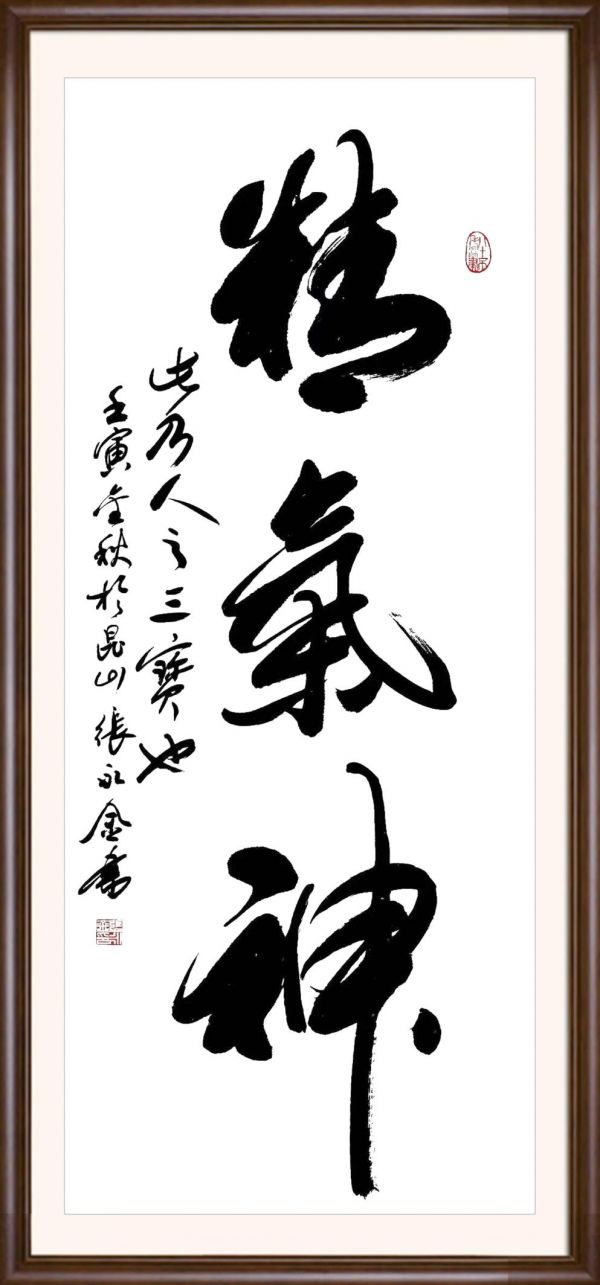 精氣神
此乃人之三寶也
壬寅金秋於昆山張永金書